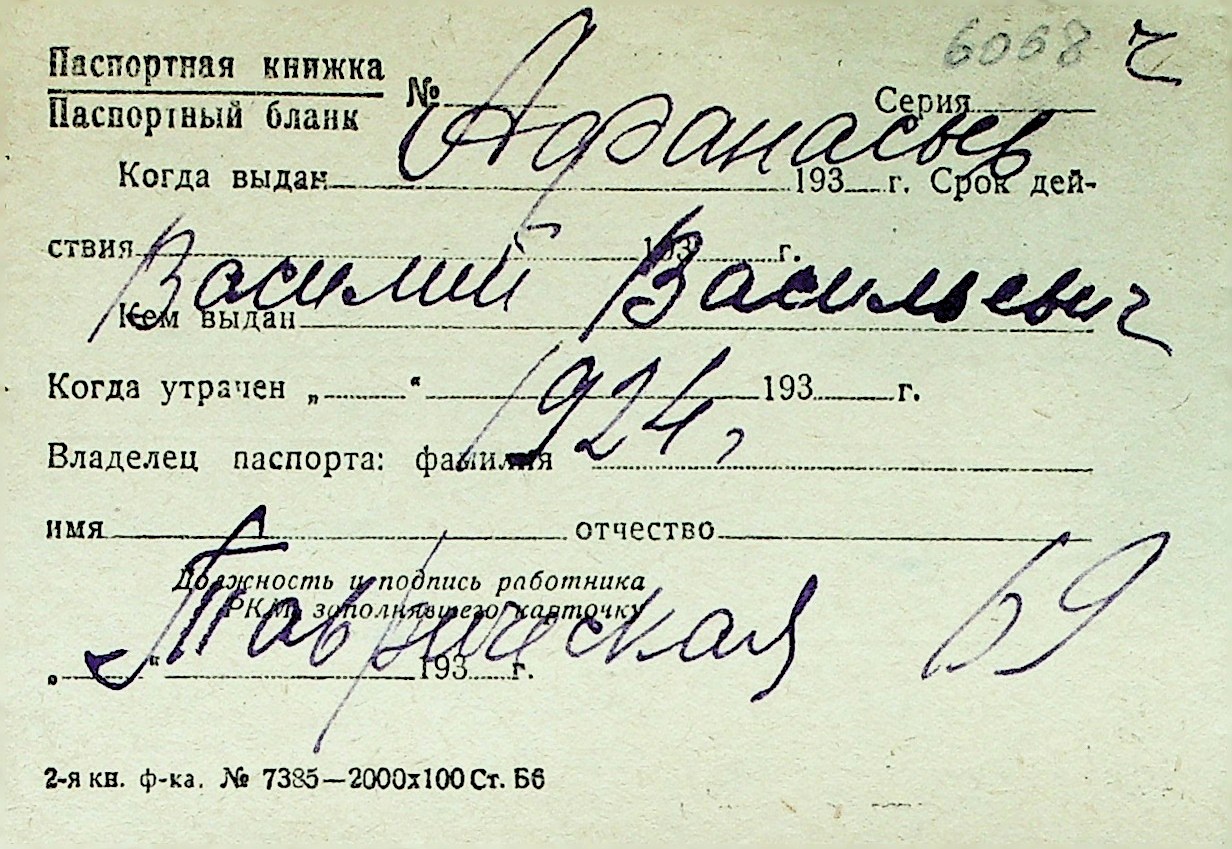 6068 ч
Паспортная книжка
Паспортный бланк
№ Серия
Афанасьев
Когда выдан 193 г. Срок дей-
ствия 193 г.
Василий Васильевич
Кем выдан
Когда утрачен „ “ 193 г.
1924,
Владелец паспорта: фамилия
имя отчество
Должность и подпись работника
РКМ, заполнявшего карточку
Таврическая 69
„ “ 193 г.
2-я кн. ф-ка. № 7385—2000х100 Ст. Б6